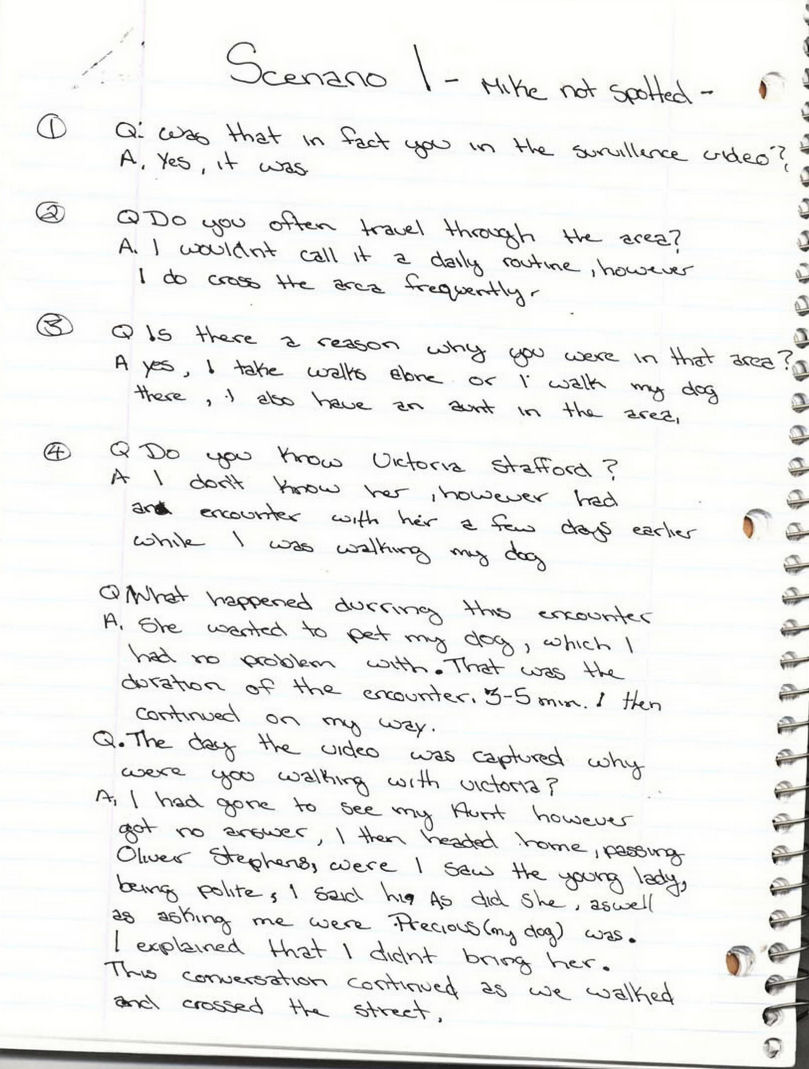 Scenario 1 - Mike not spotted -
① Q: was that in fact you in the survillence video?
A. Yes, it was
② Q Do you often travel through the area?
A. I wouldnt call it a daily routine, however
I do cross the area frequently.
③ Q Is there a reason why you were in that area?
A yes, I take walks alone or I walk my dog
there, I also have an aunt in the area,
④ Q Do you know Victoria Stafford?
A I don't know her, however had
an encounter with her a few days earlier
while I was walking my dog
Q What happened durring this encounter
A. She wanted to pet my dog, which I
had no problem with. That was the
duration of the encounter. 3-5 min. I then
continued on my way.
Q. The day the video was captured why
were you walking with victoria?
A, I had gone to see my Aunt however
got no answer, I then headed home, passing
Oliver Stephens, were I saw the young lady,
being polite, I said hi, As did she, aswell
as asking me were Precious (my dog) was.
I explained that I didnt bring her.
This conversation continued as we walked
and crossed the street,